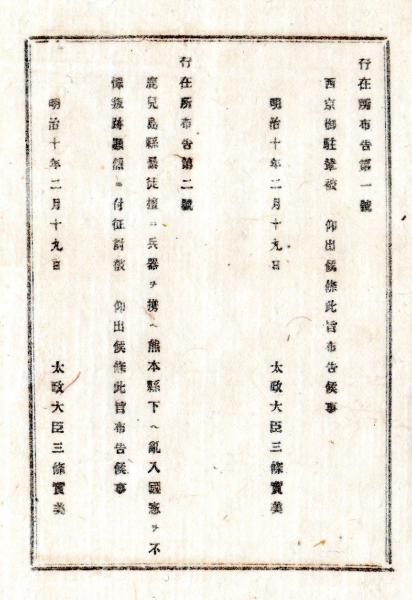 行在所布告第一號
西京御駐輦被　仰出候條此旨布告候事
明治十年二月十九日　太政大臣三條實美
行在所布告第二號
鹿兒島縣暴徒擅ニ兵器ヲ携ヘ熊本縣下ヘ亂入國憲ヲ不
憚叛跡顯然ニ付征討被　仰出候條此旨布告候事
明治十年二月十九日　太政大臣三條實美